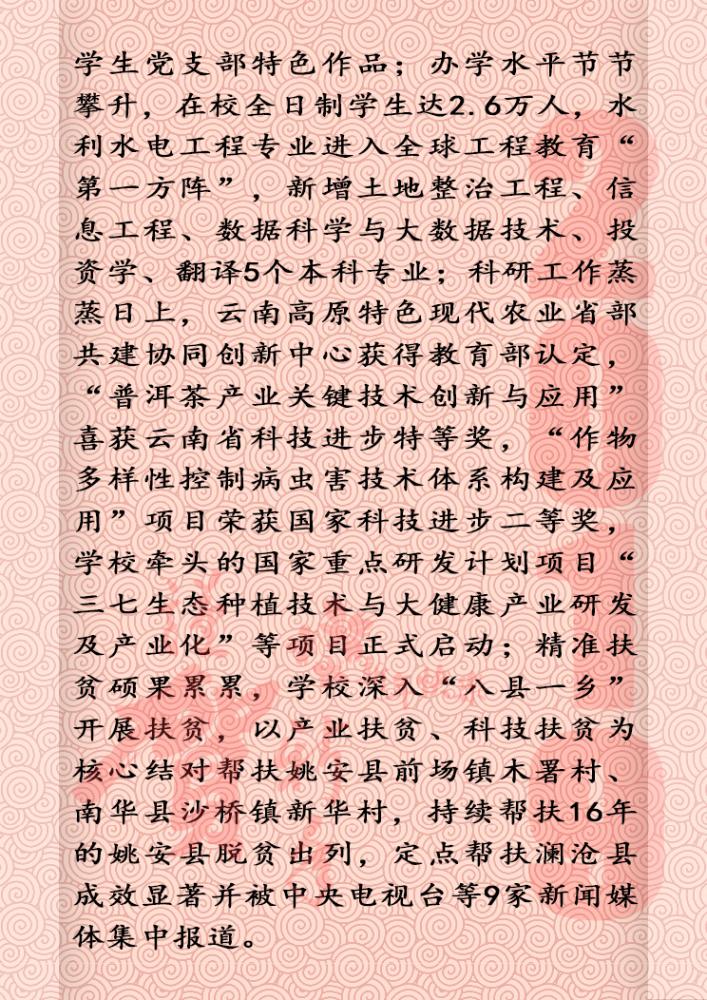 学生党支部特色作品；办学水平节节
攀升，在校全日制学生达2.6万人，水
利水电工程专业进入全球工程教育“
第一方阵”，新增土地整治工程、信
息工程、数据科学与大数据技术、投
资学、翻译5个本科专业；科研工作蒸
蒸日上，云南高原特色现代农业省部
共建协同创新中心获得教育部认定，
“普洱茶产业关键技术创新与应用”
喜获云南省科技进步特等奖，“作物
多样性控制病虫害技术体系构建及应
用”项目荣获国家科技进步二等奖，
学校牵头的国家重点研发计划项目“
三七生态种植技术与大健康产业研发
及产业化”等项目正式启动；精准扶
贫硕果累累，学校深入“八县一乡”
开展扶贫，以产业扶贫、科技扶贫为
核心结对帮扶姚安县前场镇木署村、
南华县沙桥镇新华村，持续帮扶16年
的姚安县脱贫出列，定点帮扶澜沧县
成效显著并被中央电视台等9家新闻媒
体集中报道。
2018